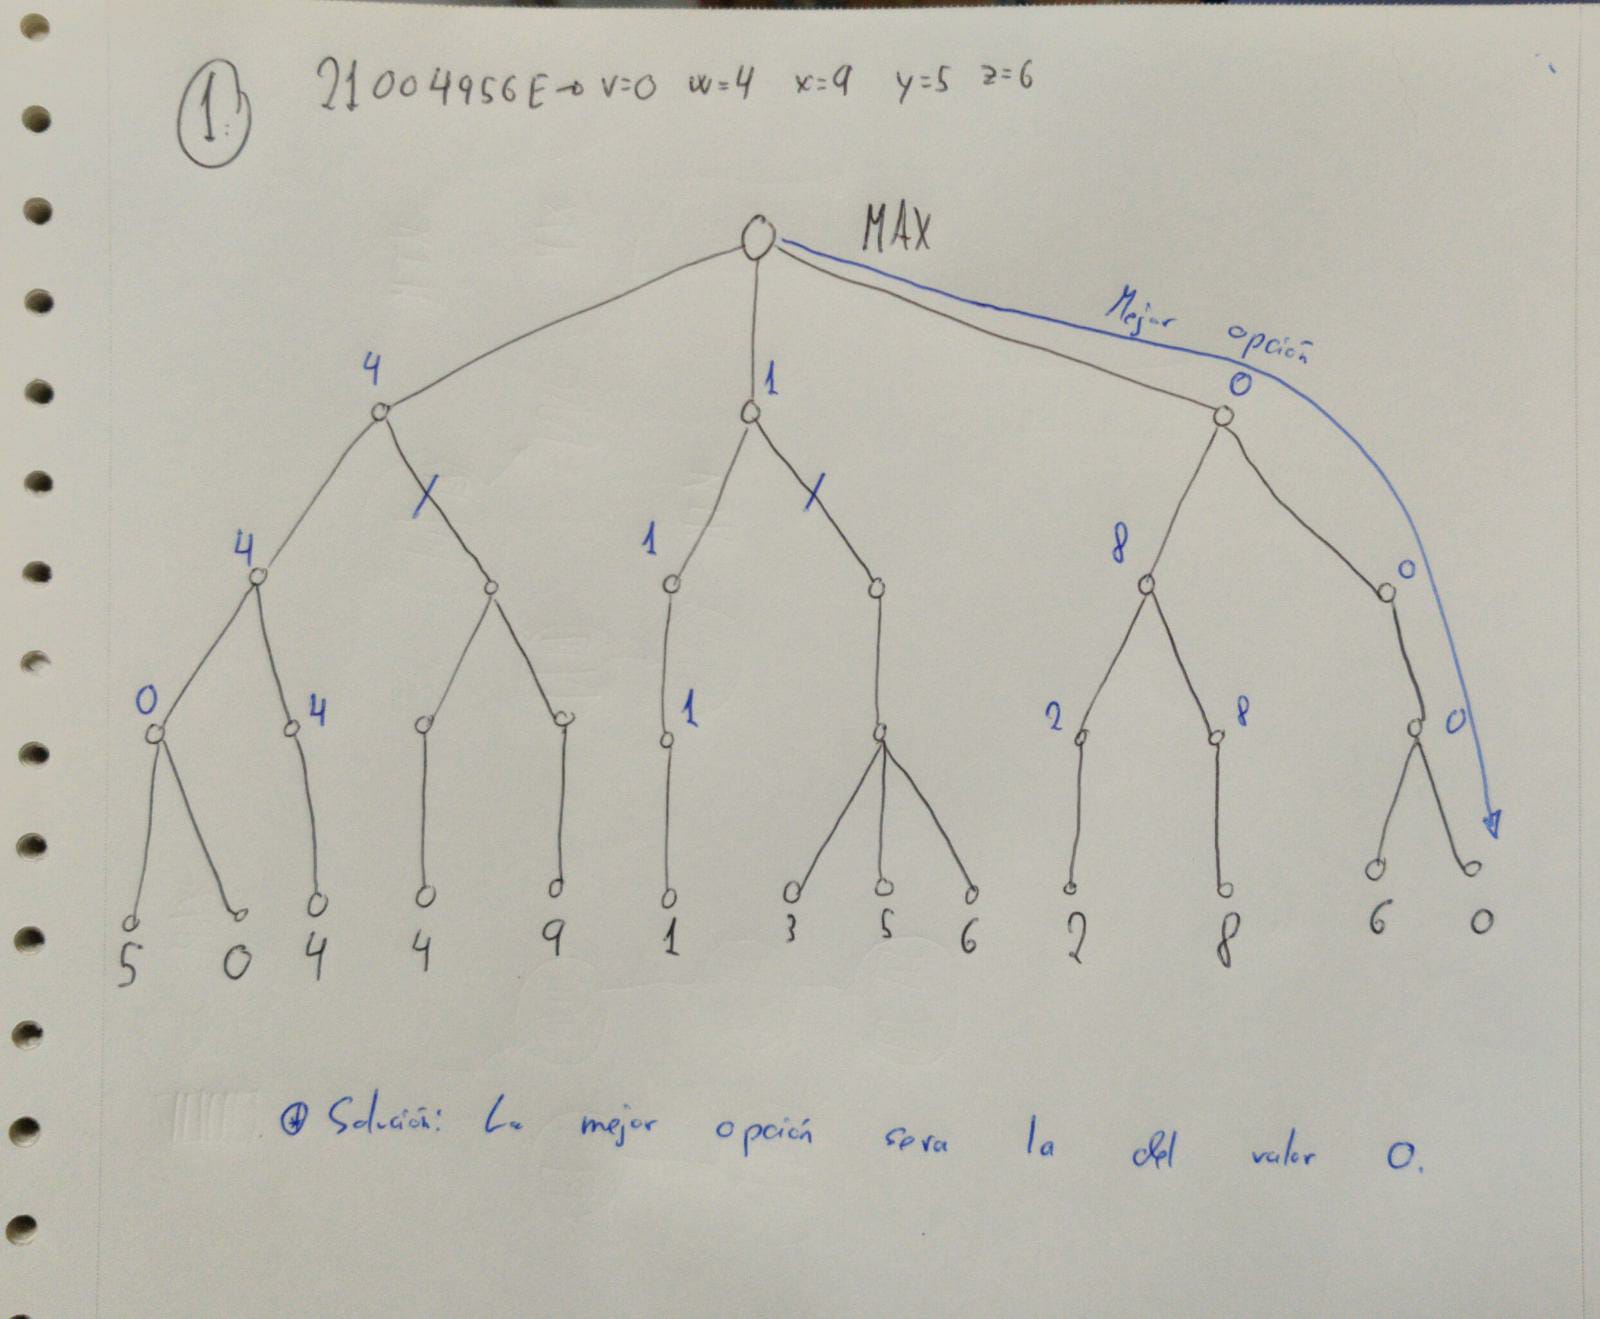 1.) 21004956E→ v=0 w=4 x=9 y=5 z=6
MAX
Mejor opción
4 1 0
4 1 8 0
0 4 1 2 8 0
5 0 4 4 9 1 3 5 6 2 8 6 0
Solución: La mejor opción sera la del valor 0.